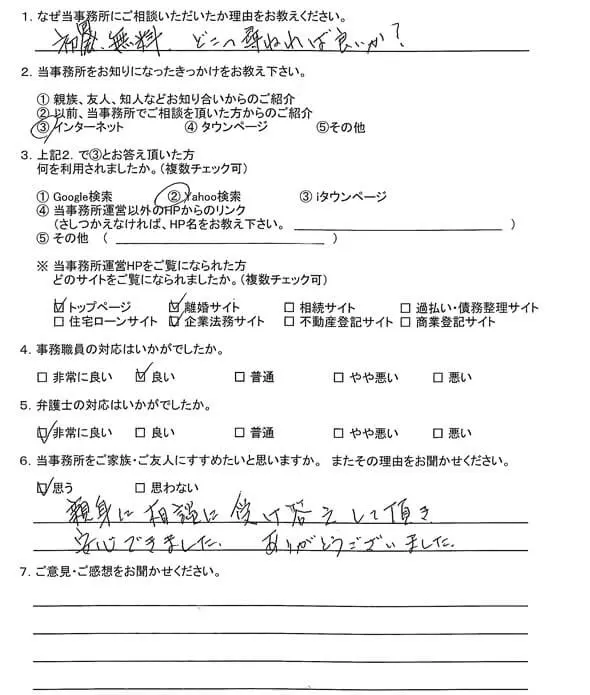 1. なぜ当事務所にご相談いただいたか理由をお教えください。
無料. どこへ尋ねれば良いか?
2. 当事務所をお知りになったきっかけをお教え下さい。
① 親族、友人、知人などお知り合いからのご紹介
② 以前、当事務所でご相談を頂いた方からのご紹介
③ インターネット ④ タウンページ ⑤その他
3. 上記2. で③とお答え頂いた方
何を利用されましたか。(複数チェック可)
① Google検索 ② Yahoo検索 ③ iタウンページ
④ 当事務所運営以外のHPからのリンク
(さしつかえなければ、HP名をお教え下さい。 )
⑤ その他 ( )
※ 当事務所運営HPをご覧になられた方
どのサイトをご覧になられましたか。(複数チェック可)
☑ トップページ ☑ 離婚サイト □ 相続サイト □ 過払い・債務整理サイト
□ 住宅ローンサイト ☑ 企業法務サイト □ 不動産登記サイト □ 商業登記サイト
4. 事務職員の対応はいかがでしたか。
□ 非常に良い ☑ 良い □ 普通 □ やや悪い □ 悪い
5. 弁護士の対応はいかがでしたか。
☑ 非常に良い □ 良い □ 普通 □ やや悪い □ 悪い
6. 当事務所をご家族・ご友人にすすめたいと思いますか。 またその理由をお聞かせください。
☑ 思う □ 思わない
親身に相談に受け答えして頂き
安心できました. ありがとうございました.
7. ご意見・ご感想をお聞かせください。